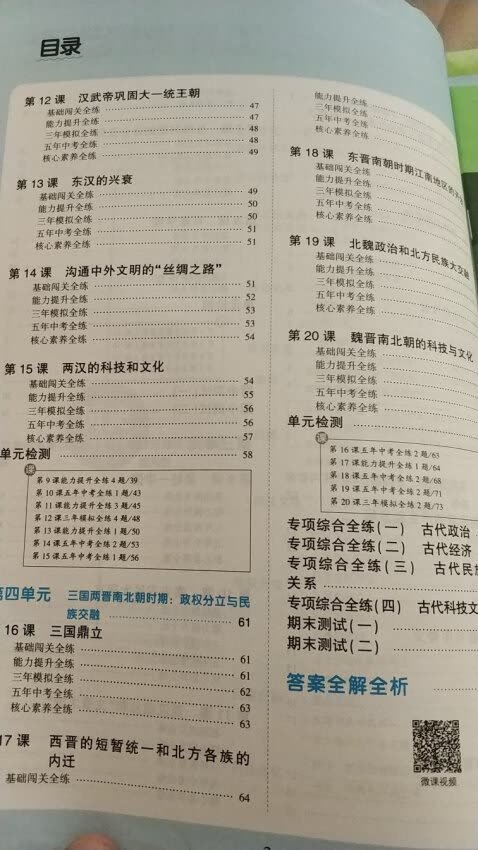 目录
第12课 汉武帝巩固大一统王朝
基础闯关全练 47
能力提升全练 47
三年模拟全练 48
五年中考全练 48
核心素养全练 49
第13课 东汉的兴衰
基础闯关全练 49
能力提升全练 50
三年模拟全练 50
五年中考全练 51
核心素养全练 51
第14课 沟通中外文明的“丝绸之路”
基础闯关全练 51
能力提升全练 52
三年模拟全练 53
五年中考全练 53
核心素养全练 54
第15课 两汉的科技和文化
基础闯关全练 54
能力提升全练 55
三年模拟全练 56
五年中考全练 56
核心素养全练 57
单元检测 58
课
第9课能力提升全练4题/39
第10课五年中考全练1题/43
第11课能力提升全练3题/45
第12课三年模拟全练4题/48
第13课能力提升全练1题/50
第14课五年中考全练2题/53
第15课五年中考全练1题/56
第四单元 三国两晋南北朝时期：政权分立与民
族交融 61
16课 三国鼎立
基础闯关全练 61
能力提升全练 61
三年模拟全练 62
五年中考全练 63
核心素养全练 63
17课 西晋的短暂统一和北方各族的
内迁
基础闯关全练 64
能力提升全练
三年模拟全练
五年中考全练
核心素养全练
第18课 东晋南朝时期江南地区的
基础闯关全练
能力提升全练
三年模拟全练
五年中考全练
核心素养全练
第19课 北魏政治和北方民族大交融
基础闯关全练
能力提升全练
三年模拟全练
五年中考全练
核心素养全练
第20课 魏晋南北朝的科技与文化
基础闯关全练
能力提升全练
三年模拟全练
五年中考全练
核心素养全练
单元检测
课
第16课五年中考全练2题/63
第17课能力提升全练1题/64
第18课五年中考全练2题/68
第19课五年中考全练2题/71
第20课三年模拟全练2题/73
专项综合全练(一) 古代政治
专项综合全练(二) 古代经济
专项综合全练(三) 古代民
关系
专项综合全练(四) 古代科技文
期末测试(一)
期末测试(二)
答案全解全析
微课视频